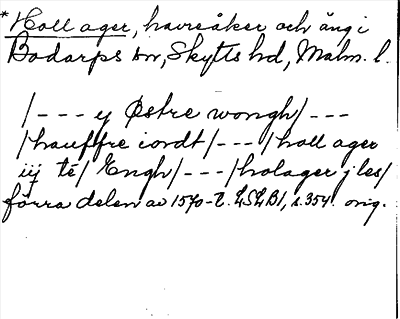 *Holl ager, havreåker och äng i
Bodarps sn, Skytts hd, Malm. l.
/--- y Østre wongh/---
/hauffre iordt/---/holl ager
iij té/ Engh/---/holager j les/
förra delen av 1570-t. LSLB1, s.354. orig.